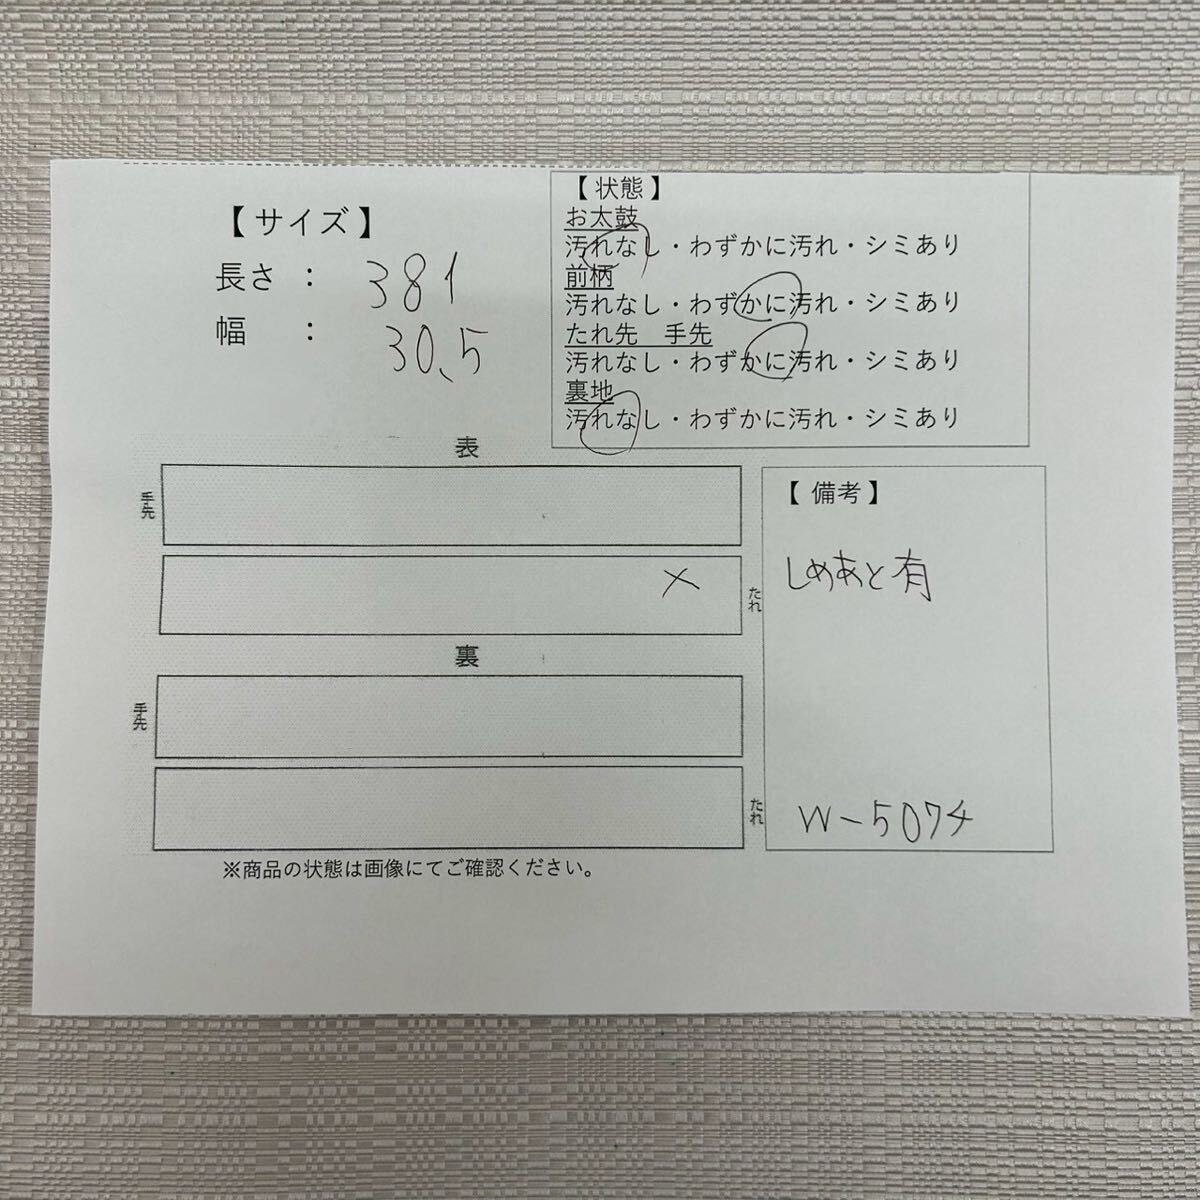 【サイズ】
長さ : 381
幅 : 30.5
【状態】
お太鼓
汚れなし・わずかに汚れ・シミあり
前柄
汚れなし・わずかに汚れ・シミあり
たれ先 手先
汚れなし・わずかに汚れ・シミあり
裏地
汚れなし・わずかに汚れ・シミあり
表
手先
×
たれ
裏
手先
たれ
【備考】
しめあと有
W-5074
※商品の状態は画像にてご確認ください。